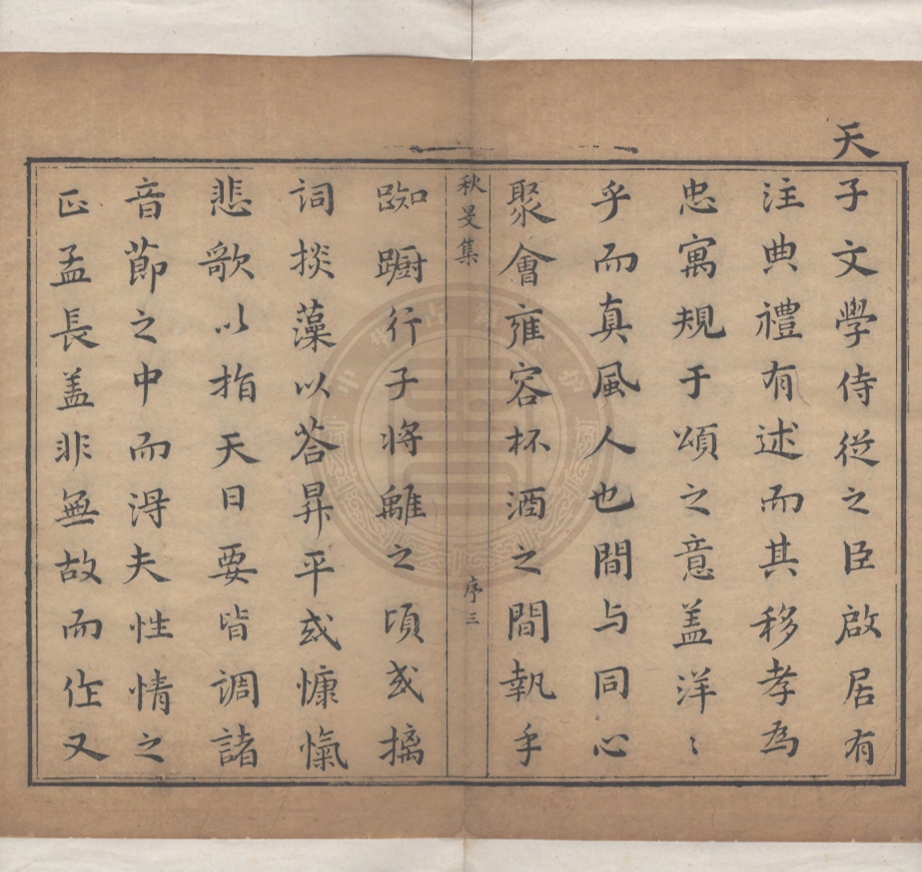 天子文學侍從之臣啟居有
注典禮有述而其移孝為
忠寓規于頌之意蓋洋〻
乎而真風人也間与同心
聚會雍容杯酒之間執手
秋旻集
序三
踟蹰行子將離之頃或摛
詞掞藻以荅昇平或慷愾
悲歌以指天日要皆調諸
音節之中而淂夫性情之
正孟長盖非無故而作又